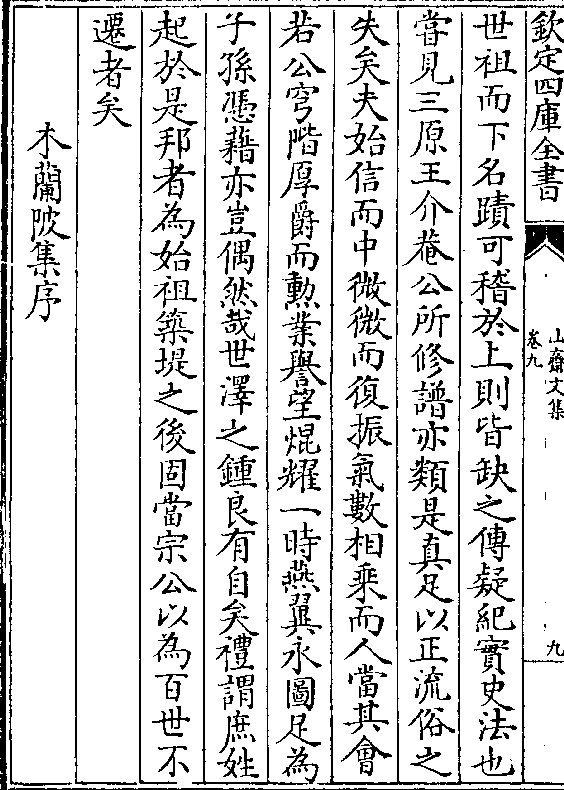 欽定四庫全書
山齋文集
卷九
九
世祖而下名蹟可稽於上則皆缺之傳疑紀實史法也
嘗見三原王介菴公所修譜亦類是真足以正流俗之
失矣夫始信而中微微而復振氣數相乘而人當其會
若公穹階厚爵而勲業譽望焜耀一時燕翼永圖足為
子孫憑藉亦豈偶然哉世澤之鍾良有自矣禮謂庶姓
起於是邦者為始祖築堤之後固當宗公以為百世不
遷者矣
木蘭陂集序